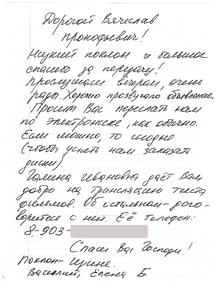 Дорогой Вячеслав
Прокофьевич!
Низкий поклон и большое
спасибо за передачу!
Прослушали вчера, очень
рады. Хорошо прозвучало объявление.
Просим Вас переслать нам
по электронке, как обычно.
Если можно, то сегодня
(чтобы успеть нам заказать
диски)
Галина Ивановна даёт Вам
добро на трансляцию текста
фильмов. Об остальном - пого-
ворите с ней. Её телефон:
8-903-
Спаси Вас Господи!
Поклон
Василий, Елена Б